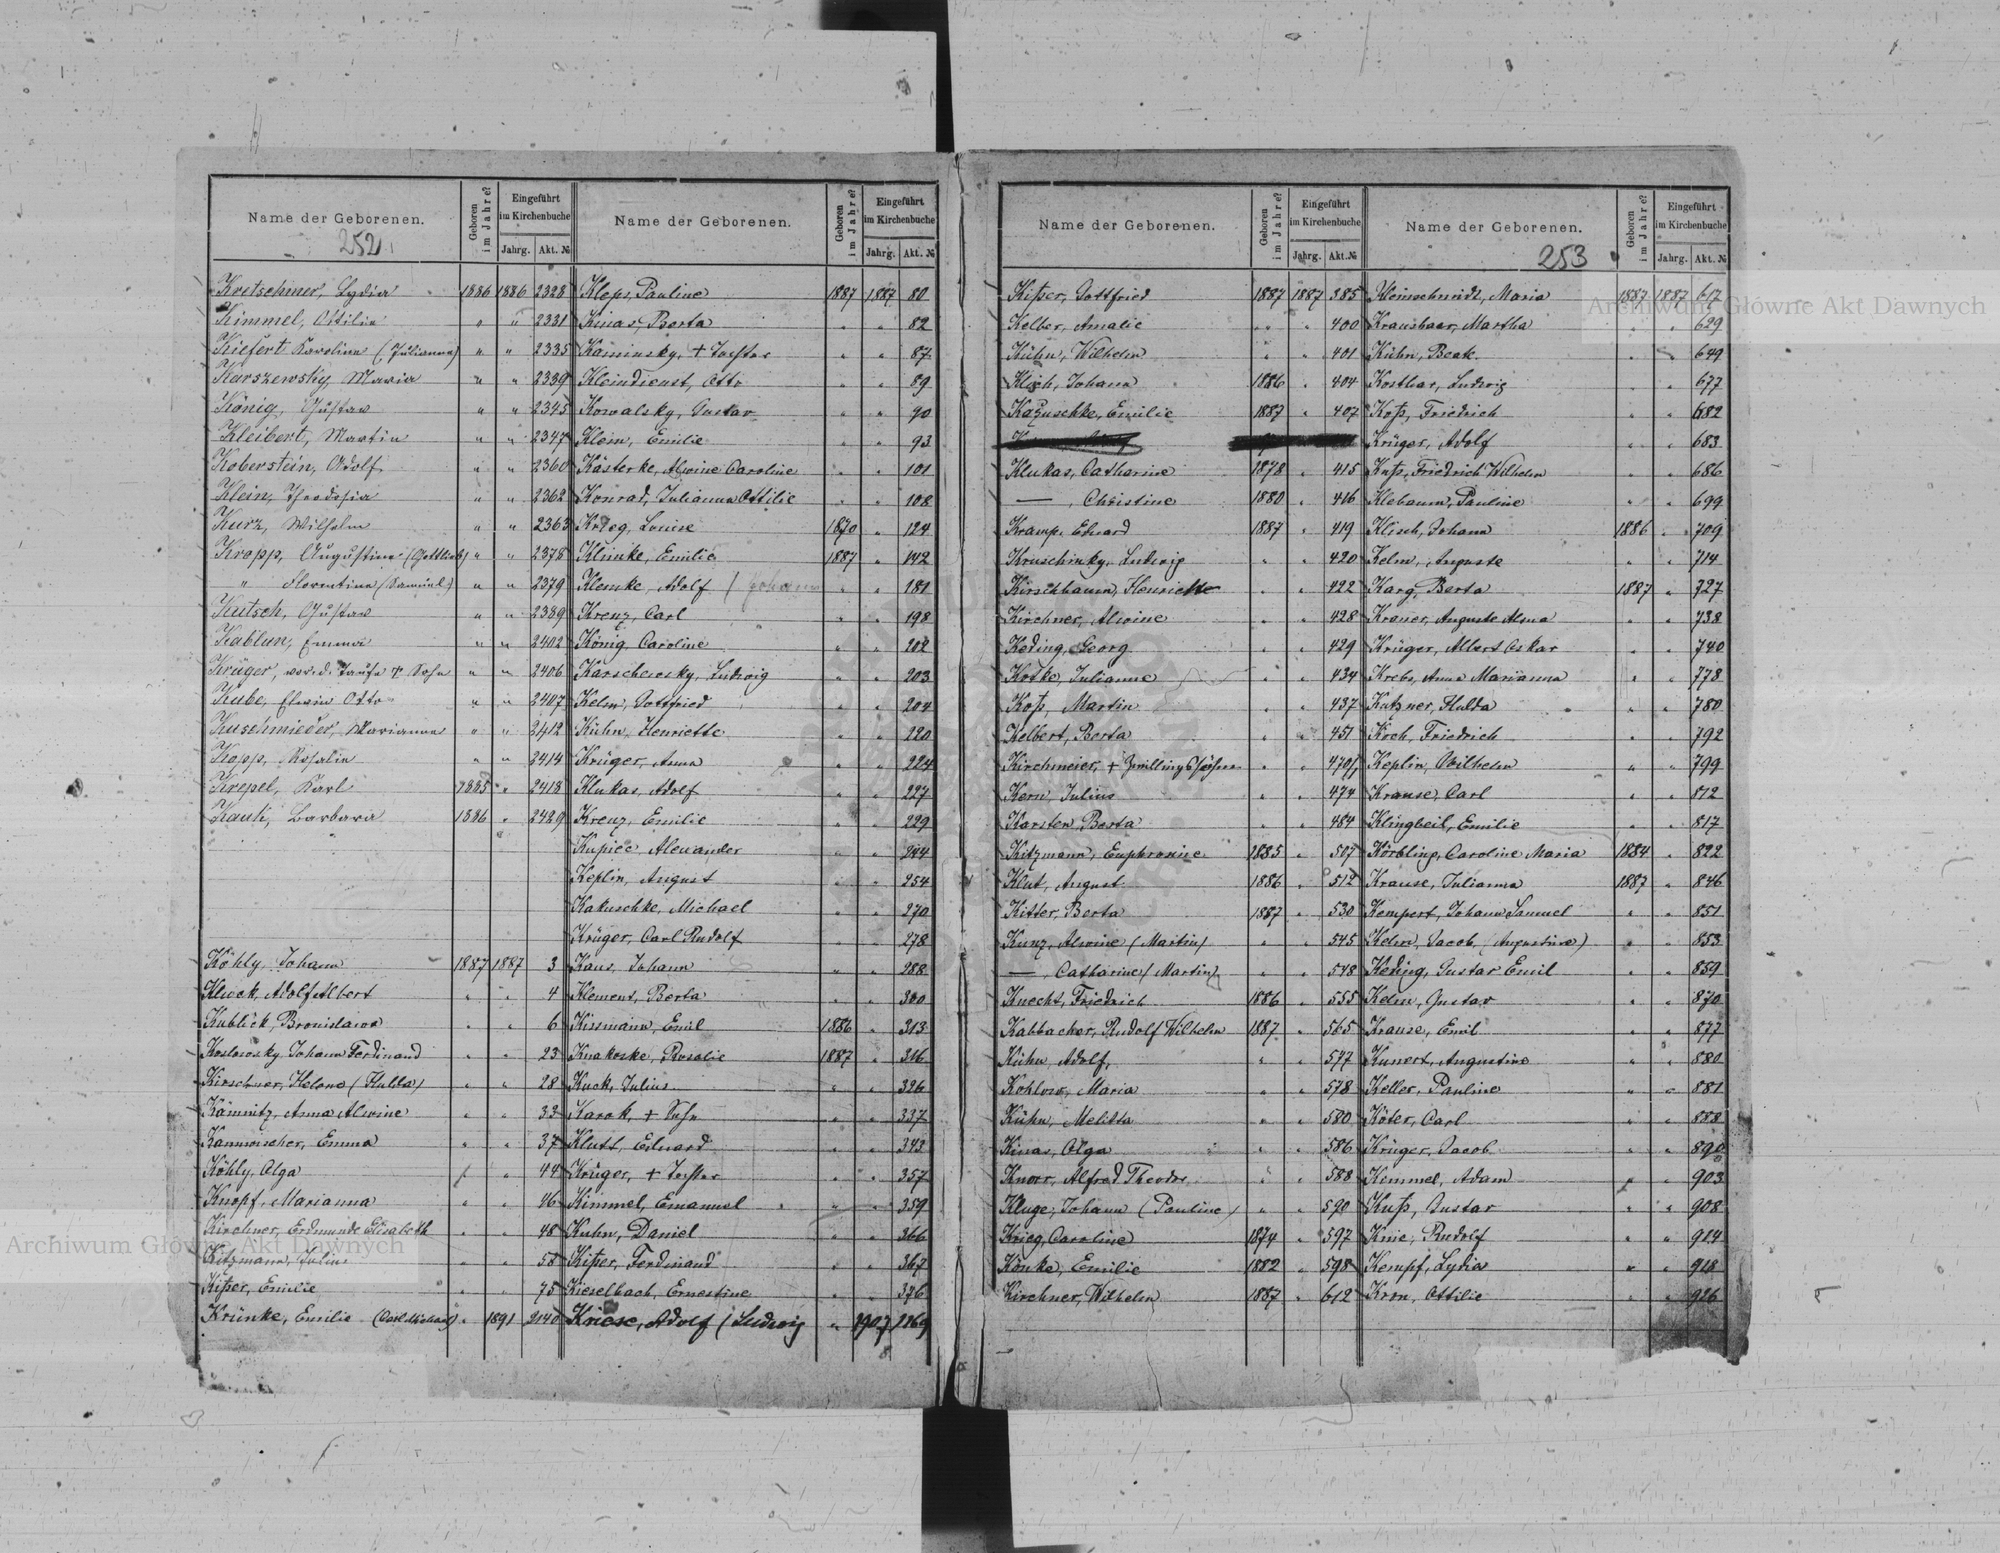 Name der Geborenen.
252
Geboren im Jahre?
Eingeführt im Kirchenbuche
Jahrg. Akt. №
Kretschmer, Lydia 1886 1886 2328
Kimmel, Ottilie " " 2331
Kiefert Karoline (Julianna) " " 2335
Karszewsky, Maria " " 2339
König, Gustav " " 2345
Kleibert, Martin " " 2347
Koberstein, Adolf " " 2360
Klein, Theodosia " " 2362
Kurz, Wilhelm " " 2363
Kropp, Augustine (Gottlieb) " " 2378
" Florentina (Samuel) " " 2379
Kutsch, Gustav " " 2389
Kablun, Emma " " 2402
Krüger, vor d. Taufe † Sohn " " 2406
Kube, Erwin Otto " " 2407
Kuschmieder, Marianna " " 2412
Kopp, Rosalie " " 2414
Krepel, Karl 1885 " 2418
Kauli, Barbara 1886 " 2429
Köhly Johann 1887 1887 3
Klwak, Adolf Albert " " 4
Kublick, Bronislawa " " 6
Koslowsky, Johann Ferdinand " " 23
Kirschner, Helene (Hulda) " " 28
Kämnitz, Anna Alwine " " 33
Kannwischer, Emma " " 37
Köhly, Olga " " 44
Knopf, Marianna " " 46
Kirchner, Erdmunde Elisabeth " " 48
Kitzmann, Julius " " 58
Kißer, Emilie " " 75
Krünke, Emilie (Carl Michael) " 1891 2140
Name der Geborenen.
Geboren im Jahre?
Eingeführt im Kirchenbuche
Jahrg. Akt. №
Kleps, Pauline 1887 1887 80
Kinas, Berta " " 82
Kaminsky, † Tochter " " 87
Kleindienst, Otto " " 89
Kowalsky, Gustav " " 90
Klein, Emilie " " 93
Kästerke, Alwine Caroline " " 101
Konrad, Julianna Ottilie " " 108
Krieg, Louise 1870 " 124
Klimke, Emilie 1887 " 142
Klemke, Adolf / Johann " " 181
Krenz, Carl " " 198
König, Caroline " " 202
Karschewsky, Ludwig " " 203
Kelm, Gottfried " " 204
Kühn, Henriette " " 220
Krüger, Anna " " 224
Klukas, Adolf " " 227
Krenz, Emilie " " 229
Kupiec, Alexander " " 244
Keplin, August " " 254
Kakuschke, Michael " " 270
Krüger, Carl Rudolf " " 278
Kaus, Johann " " 288
Klement, Berta " " 300
Kissmann, Emil 1886 " 313
Knakoske, Rosalie 1887 " 316
Kuck, Julius " " 326
Karok, † Sohn " " 337
Klutt, Eduard " " 343
Krüger, † Tochter " " 357
Kimmel, Emanuel " " 359
Kuhn, Daniel " " 366
Kißer, Ferdinand " " 367
Kieselbach, Ernestine " " 376
Kriese, Adolf (Ludwig " 1907 1169
Name der Geborenen.
Geboren im Jahre?
Eingeführt im Kirchenbuche
Jahrg. Akt. №
Kißer, Gottfried 1887 1887 385
Kelber, Amalie " " 400
Kühn, Wilhelm " " 401
Klich, Johann 1886 " 404
Kazuschke, Emilie 1887 " 407
Klukas, Catharine 1878 " 415
— , Christine 1880 " 416
Kramp, Eduard 1887 " 419
Kruschinky, Ludwig " " 420
Kirschbaum, Henriette " " 422
Kirchner, Alwine " " 428
Keding, Georg " " 429
Kotke, Julianne " " 434
Koß, Martin " " 437
Kelbert, Berta " " 451
Kirchmeier, † Zwillingssöhne " " 470/1
Kern, Julius " " 474
Karsten, Berta " " 484
Kitzmann, Euphrosine 1885 " 507
Klut, August 1886 " 512
Kitter, Berta 1887 " 530
Kunz, Alwine (Martin) " " 545
— , Catharine (Martin) " " 548
Knecht, Friedrich 1886 " 555
Kabbacher, Rudolf Wilhelm 1887 " 565
Kühn, Adolf, " " 577
Kohlow, Maria " " 578
Kühn, Melitta " " 580
Kinas, Olga " " 586
Knorr, Alfred Theodor " " 588
Kluge, Johann (Pauline) " " 590
Krieg, Caroline 1874 " 597
Könke, Emilie 1882 " 598
Kirchner, Wilhelm 1887 " 612
Name der Geborenen.
253
Geboren im Jahre?
Eingeführt im Kirchenbuche
Jahrg. Akt. №
Kleinschmidt, Maria 1887 1887 617
Kraushaar, Martha " " 629
Kühn, Beate " " 649
Kostbar, Ludwig " " 677
Koß, Friedrich " " 682
Krüger, Adolf " " 683
Kuß, Friedrich Wilhelm " " 686
Klebaum, Pauline " " 699
Klisch, Johann 1886 " 709
Kelm, Auguste " " 714
Karg, Berta 1887 " 727
Kraner, Auguste Alma " " 738
Krüger, Albert Oskar " " 740
Krebs, Anna Marianna " " 778
Kutzner, Hulda " " 780
Koch, Friedrich " " 792
Keplin, Wilhelm " " 799
Krause, Carl " " 812
Klingbeil, Emilie " " 817
Körbling, Caroline Maria 1884 " 822
Krause, Julianna 1887 " 846
Kempert, Johann Samuel " " 851
Kelm, Jacob (Augustine) " " 853
Keding, Gustav Emil " " 859
Kelm, Gustav " " 870
Krause, Emil " " 877
Kunert, Augustine " " 880
Keller, Pauline " " 881
Köter, Carl " " 888
Krüger, Jacob " " 890
Kimmel, Adam " " 903
Kuß, Gustav " " 908
Knie, Rudolf " " 914
Kempf, Lydia " " 918
Kron, Ottilie " " 926
Archiwum Główne Akt Dawnych
Archiwum Główne Akt Dawnych